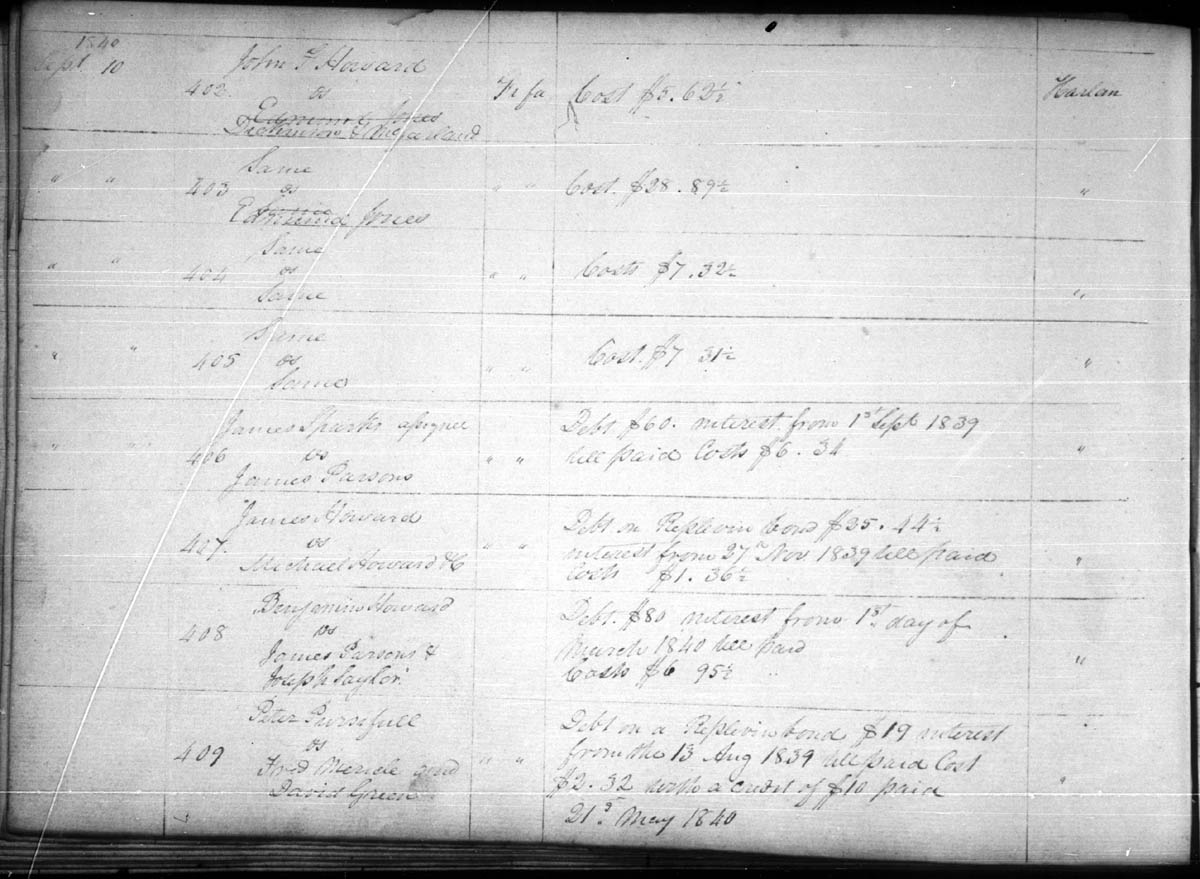 1840
Sept. 10
John F Howard
402. vs Fi fa Cost $5.62½ Harlan
Edmund Jones
Dickinson & McFarland
Same
" " 403 vs " " Cost. $28.89½ "
Edmund Jones
Same
" " 404 vs " " Costs $7.32½ "
Same
Same
" " 405 vs " " Cost. $7 31½ "
Same
James Sparks assignee Debt $60. interest from 1st Sept 1839
" " 406 vs " " till paid Costs $6.34 "
James Parsons
James Howard Debt on Replevin bond $25.44½
407. vs " " interest from 27th Nov. 1839 till paid "
Michael Howard &C Costs $1.36½
Benjamin Howard Debt. $80 interest from 1st day of
408 vs March 1840 till paid
James Parsons & Costs $6 95½ "
Joseph Saylor
Peter Pursifull Debt on a Replevin bond $19 interest
409 vs " " from the 13 Aug 1839 till paid Cost
Fred Mericle and $2.32 with a credit of $10 paid "
David Green 21st May 1840